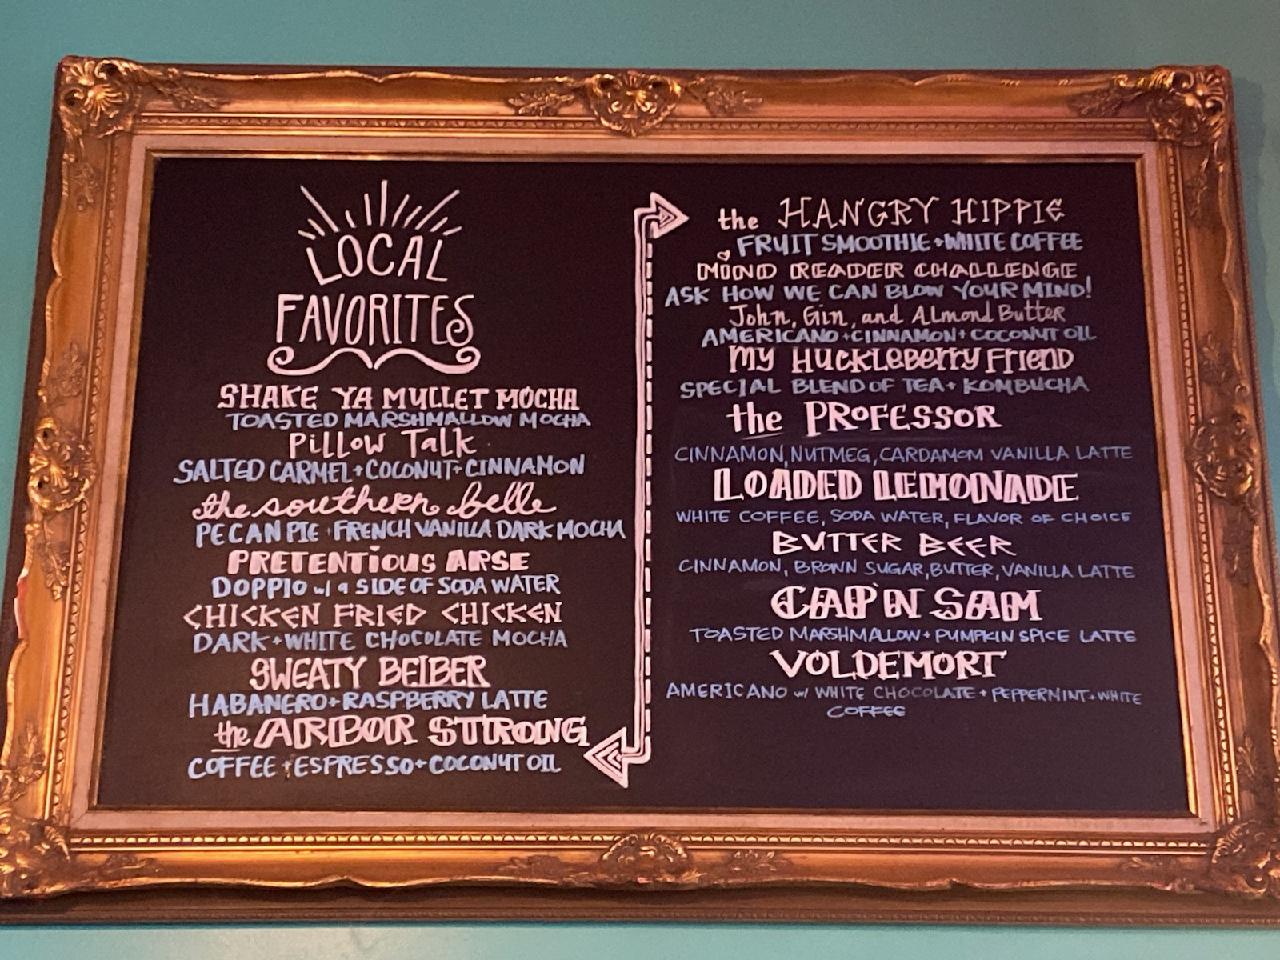 LOCAL
FAVORITES
SHAKE YA MULLET MOCHA
TOASTED MARSHMALLOW MOCHA
PILLOW TALK
SALTED CARMEL + COCONUT + CINNAMON
the southern belle
PECAN PIE + FRENCH VANILLA DARK MOCHA
PRETENTIOUS ARSE
DOPPIO w/ a SIDE OF SODA WATER
CHICKEN FRIED CHICKEN
DARK + WHITE CHOCOLATE MOCHA
SWEATY BEIBER
HABANERO + RASPBERRY LATTE
the ARBOR STRONG
COFFEE + ESPRESSO + COCONUT OIL
the HANGRY HIPPIE
FRUIT SMOOTHIE + WHITE COFFEE
MIND READER CHALLENGE
ASK HOW WE CAN BLOW YOUR MIND!
John, Gin, and Almond Butter
AMERICANO + CINNAMON + COCONUT OIL
MY HUCKLEBERRY FRIEND
SPECIAL BLEND OF TEA + KOMBUCHA
the PROFESSOR
CINNAMON, NUTMEG, CARDAMOM VANILLA LATTE
LOADED LEMONADE
WHITE COFFEE, SODA WATER, FLAVOR OF CHOICE
BUTTER BEER
CINNAMON, BROWN SUGAR, BUTTER, VANILLA LATTE
CAP'N SAM
TOASTED MARSHMALLOW + PUMPKIN SPICE LATTE
VOLDEMORT
AMERICANO w/ WHITE CHOCOLATE + PEPPERMINT + WHITE
COFFEE